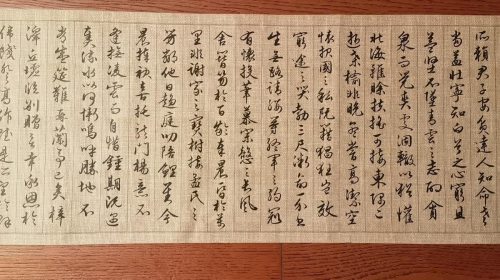 所賴君子安貧達人知命老
當益壯寧知白首之心窮且
益堅不墜青雲之志酌貪
泉而覺爽處涸轍以猶懽
北海雖賒扶搖可接東隅已
逝桑榆非晚孟嘗高潔空
懷報國之私阮籍猖狂豈效
窮途之哭勃三尺微命一介書
生無路請纓等終軍之弱冠
有懷投筆慕宗慤之長風
舍簪笏於百齡奉晨昏於萬
里非謝家之寶樹接孟氏之
芳鄰他日趨庭叨陪鯉對今
晨捧袂喜托龍門楊意不
逢撫凌雲而自惜鍾期既遇
奏流水以何慚嗚呼勝地不
常盛筵難再蘭亭已矣梓
澤丘墟臨別贈言幸承恩於
偉餞登高作賦是所望於